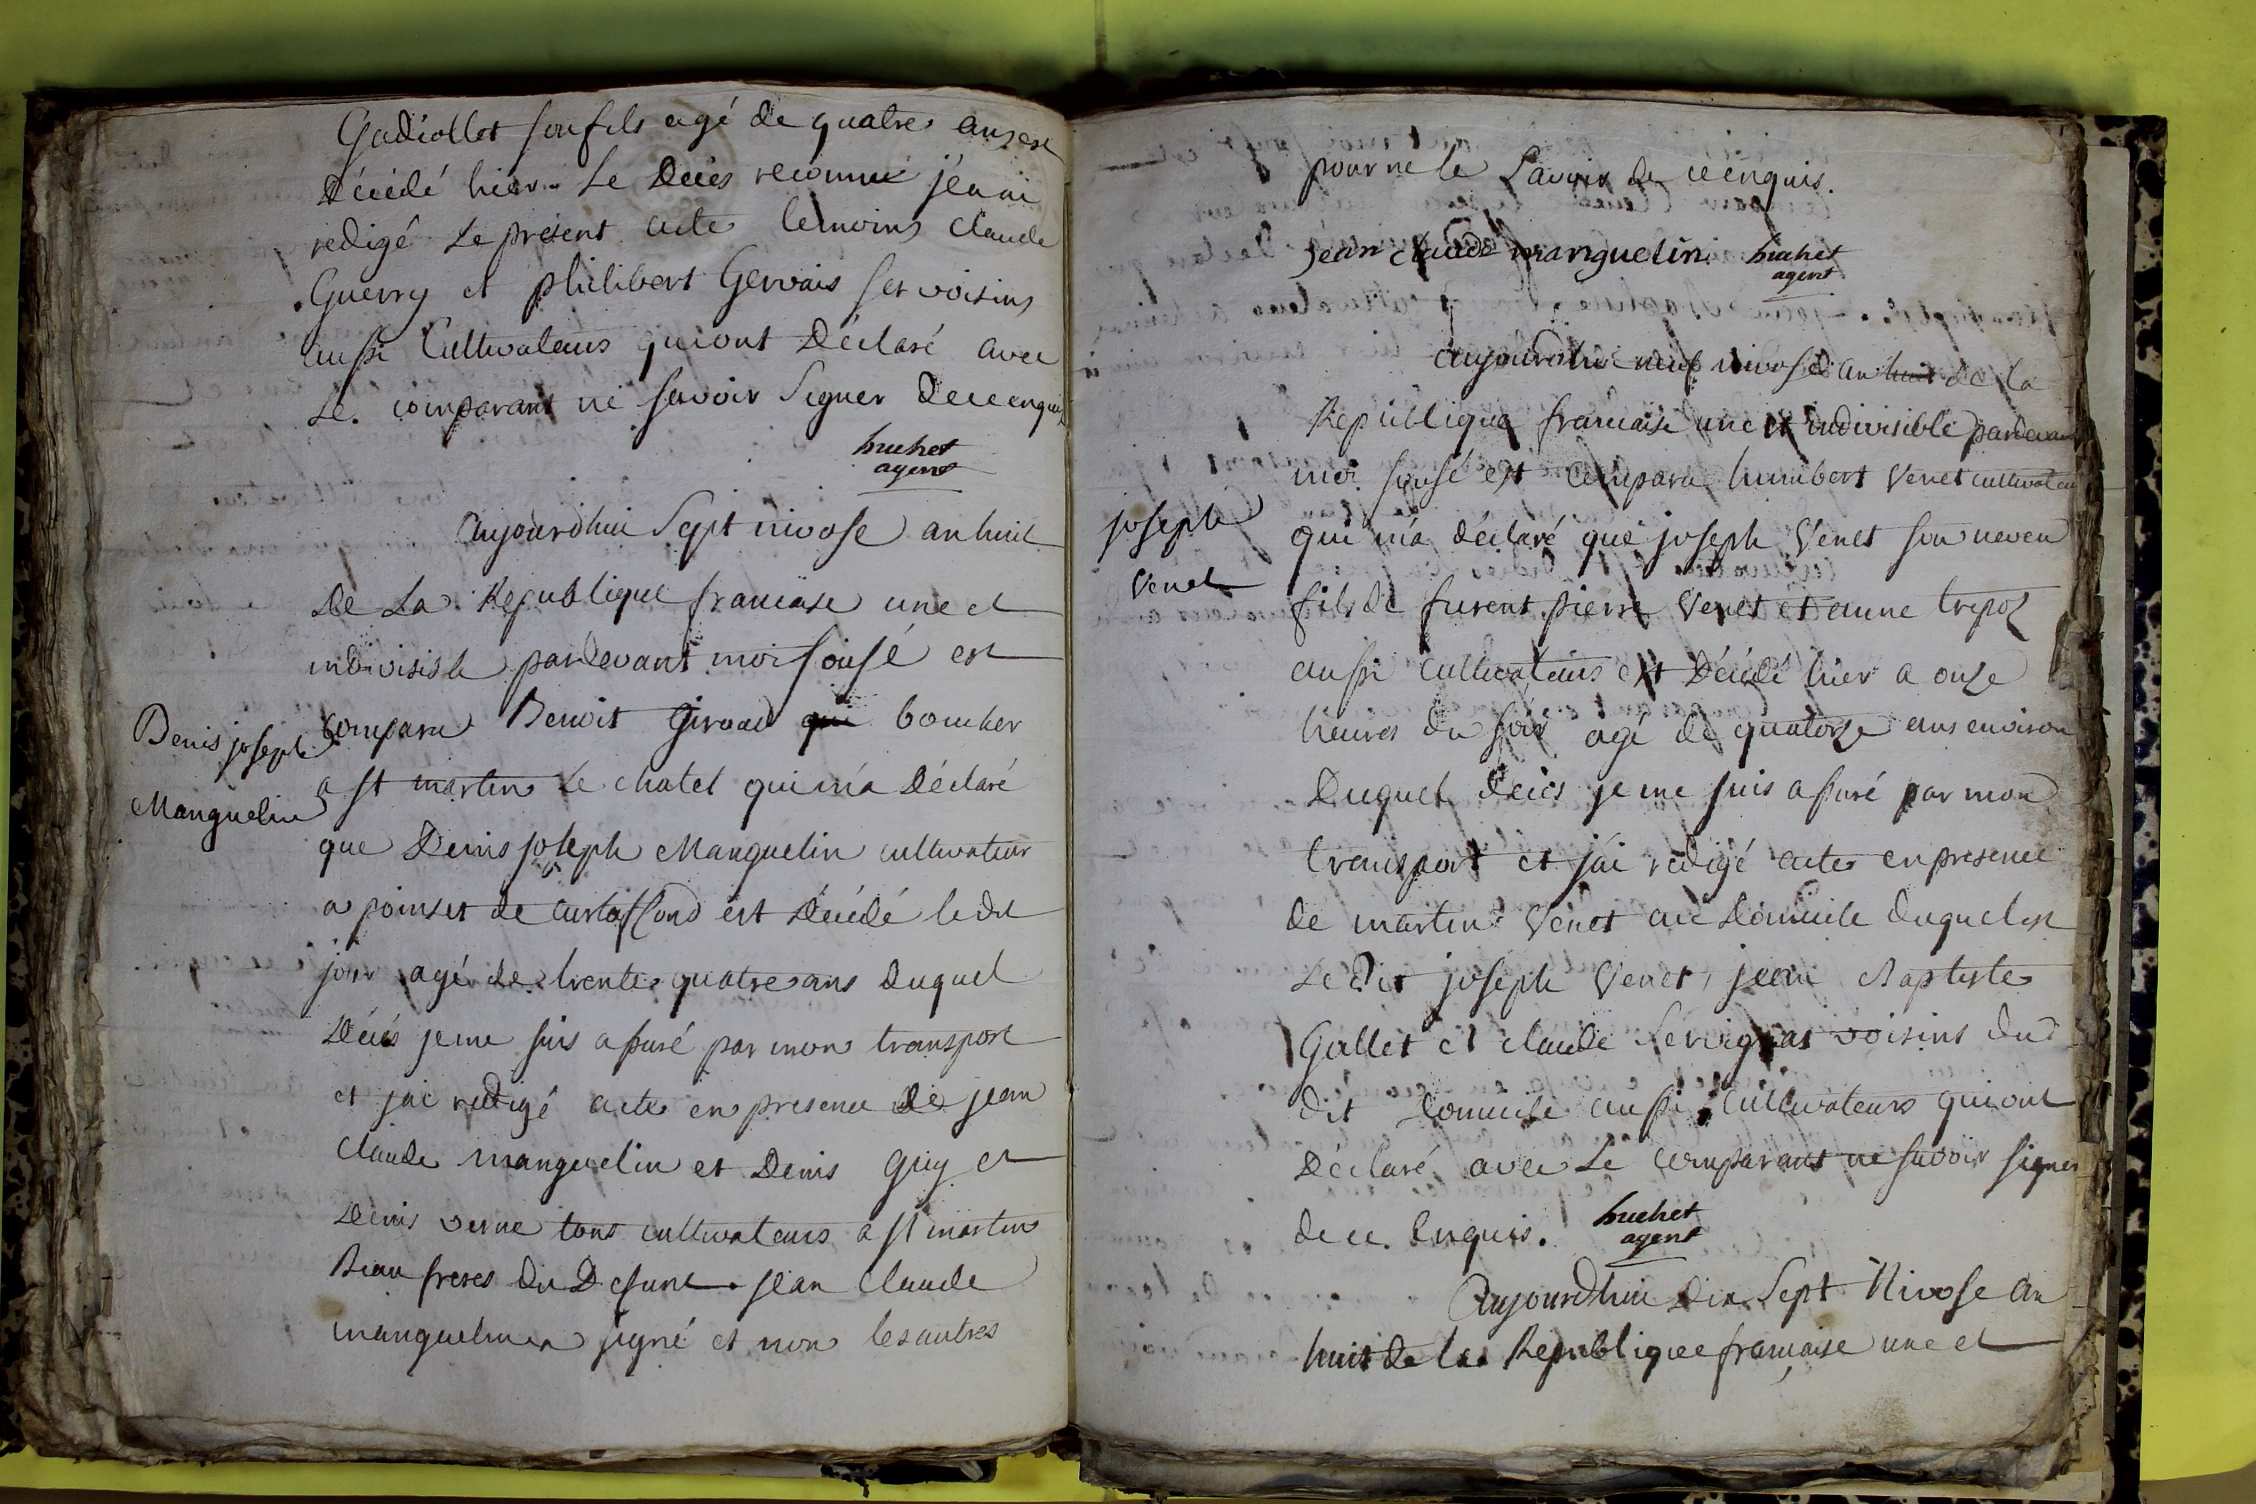 Gadiollet son fils agé de quatre ans est
Décédé hier. Le Décés reconnu j'en ai
redigé Le présent acte temoins Claude
Guerry et philibert Gervais ses voisins
aussi Cultivateurs qui ont Déclaré avec
Le comparant ne savoir Signer De ce enquis
buchet
agent
Aujourdhui Sept nivose an huit
De La Republique francaise une et
indivisible pardevant moi sousé est
Comparu Benoit Giroud qui boucher
a st martin Le chatel qui m'a Déclaré
Denis joseph
Manguelin
que Denis joseph Manguelin cultivateur
a poinset de curtafond est Décédé ledit
jour agé de trente quatre ans Duquel
Décés je me suis assuré par mon transport
et j'ai redigé acte en presence de jean
Claude manguelin et Denis Guy et
Denis verne tous cultivateurs a st martin
Beau freres du Defunt. jean Claude
manguelin a signé et non les autres
pour ne le Savoir de ce enquis.
jean claude manguelin buchet
agent
aujourdhui neuf nivose an huit de la
Republique francaise une et indivisible pardevant
moi sousé est Comparu humbert Venet cultivateur
joseph
Venet
qui m'a déclaré que joseph Venet son neveu
fils de furent pierre Venet et anne trepoz
aussi cultivateurs est Décédé hier a onze
heures du soir agé de quatorze ans environ
Duquel Décés je me suis assuré par mon
transport et j'ai redigé acte en presence
de martin Venet au Domicile duquel est
Le dit joseph Venet, jean Baptiste
Gallet et claude Servignat voisins du
dit Domicile aussi Cultivateurs qui ont
Déclaré avec Le comparant ne savoir signer
de ce Enquis. buchet
agent
Aujourdhui Dix Sept Nivose an
huit de la Republique française une et